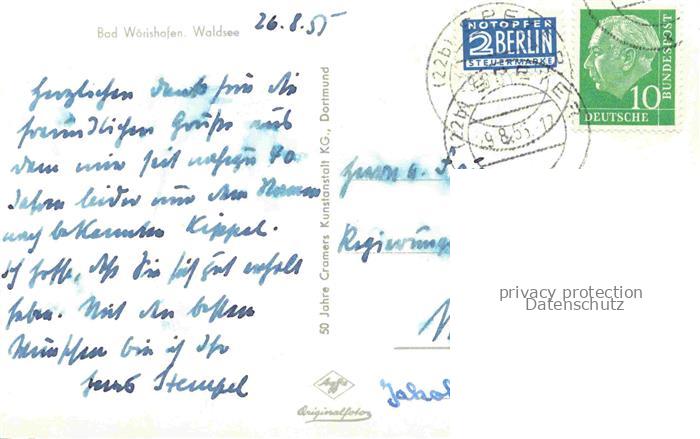 Bad Wörishofen. Waldsee
26.8.55
Herzlichen Dank für die
freundlichen Grüße aus
dem mir seit nahezu 40
Jahren leider nur dem Namen
nach bekannten Kippel.
Ich hoffe, daß Sie sich gut erholt
haben. Mit den besten
Wünschen bin ich Ihr
Stempel
50 Jahre Cramers Kunstanstalt KG., Dortmund
Agfa
Originalfoto
NOTOPFER
2 BERLIN
STEUERMARKE
(22b) SPEYER
DEUTSCHE
BUNDESPOST
10
Herrn
Regierung
privacy protection
Datenschutz